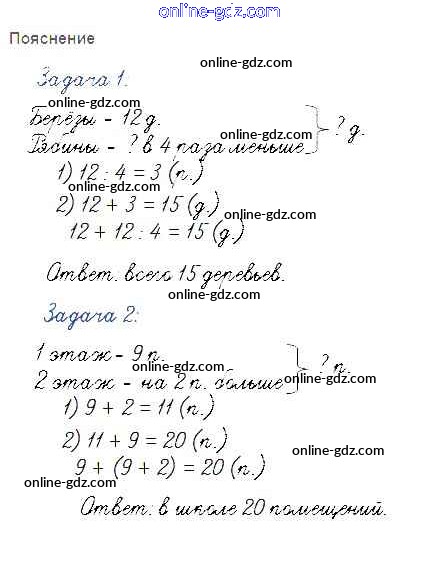 online-gdz.com
Пояснение
online-gdz.com
Задача 1:
online-gdz.com
Берёзы - 12 д.
online-gdz.com
Рябины - ? в 4 раза меньше } ? д.
1) 12 : 4 = 3 (п.)
online-gdz.com
2) 12 + 3 = 15 (д.)
online-gdz.com
12 + 12 : 4 = 15 (д.)
Ответ: всего 15 деревьев.
online-gdz.com
Задача 2:
online-gdz.com
1 этаж - 9 п.
2 этаж - на 2 п. больше } ? п.
online-gdz.com
online-gdz.com
1) 9 + 2 = 11 (п.)
2) 11 + 9 = 20 (п.)
online-gdz.com
9 + (9 + 2) = 20 (п.)
online-gdz.com
Ответ: в школе 20 помещений.
online-gdz.com